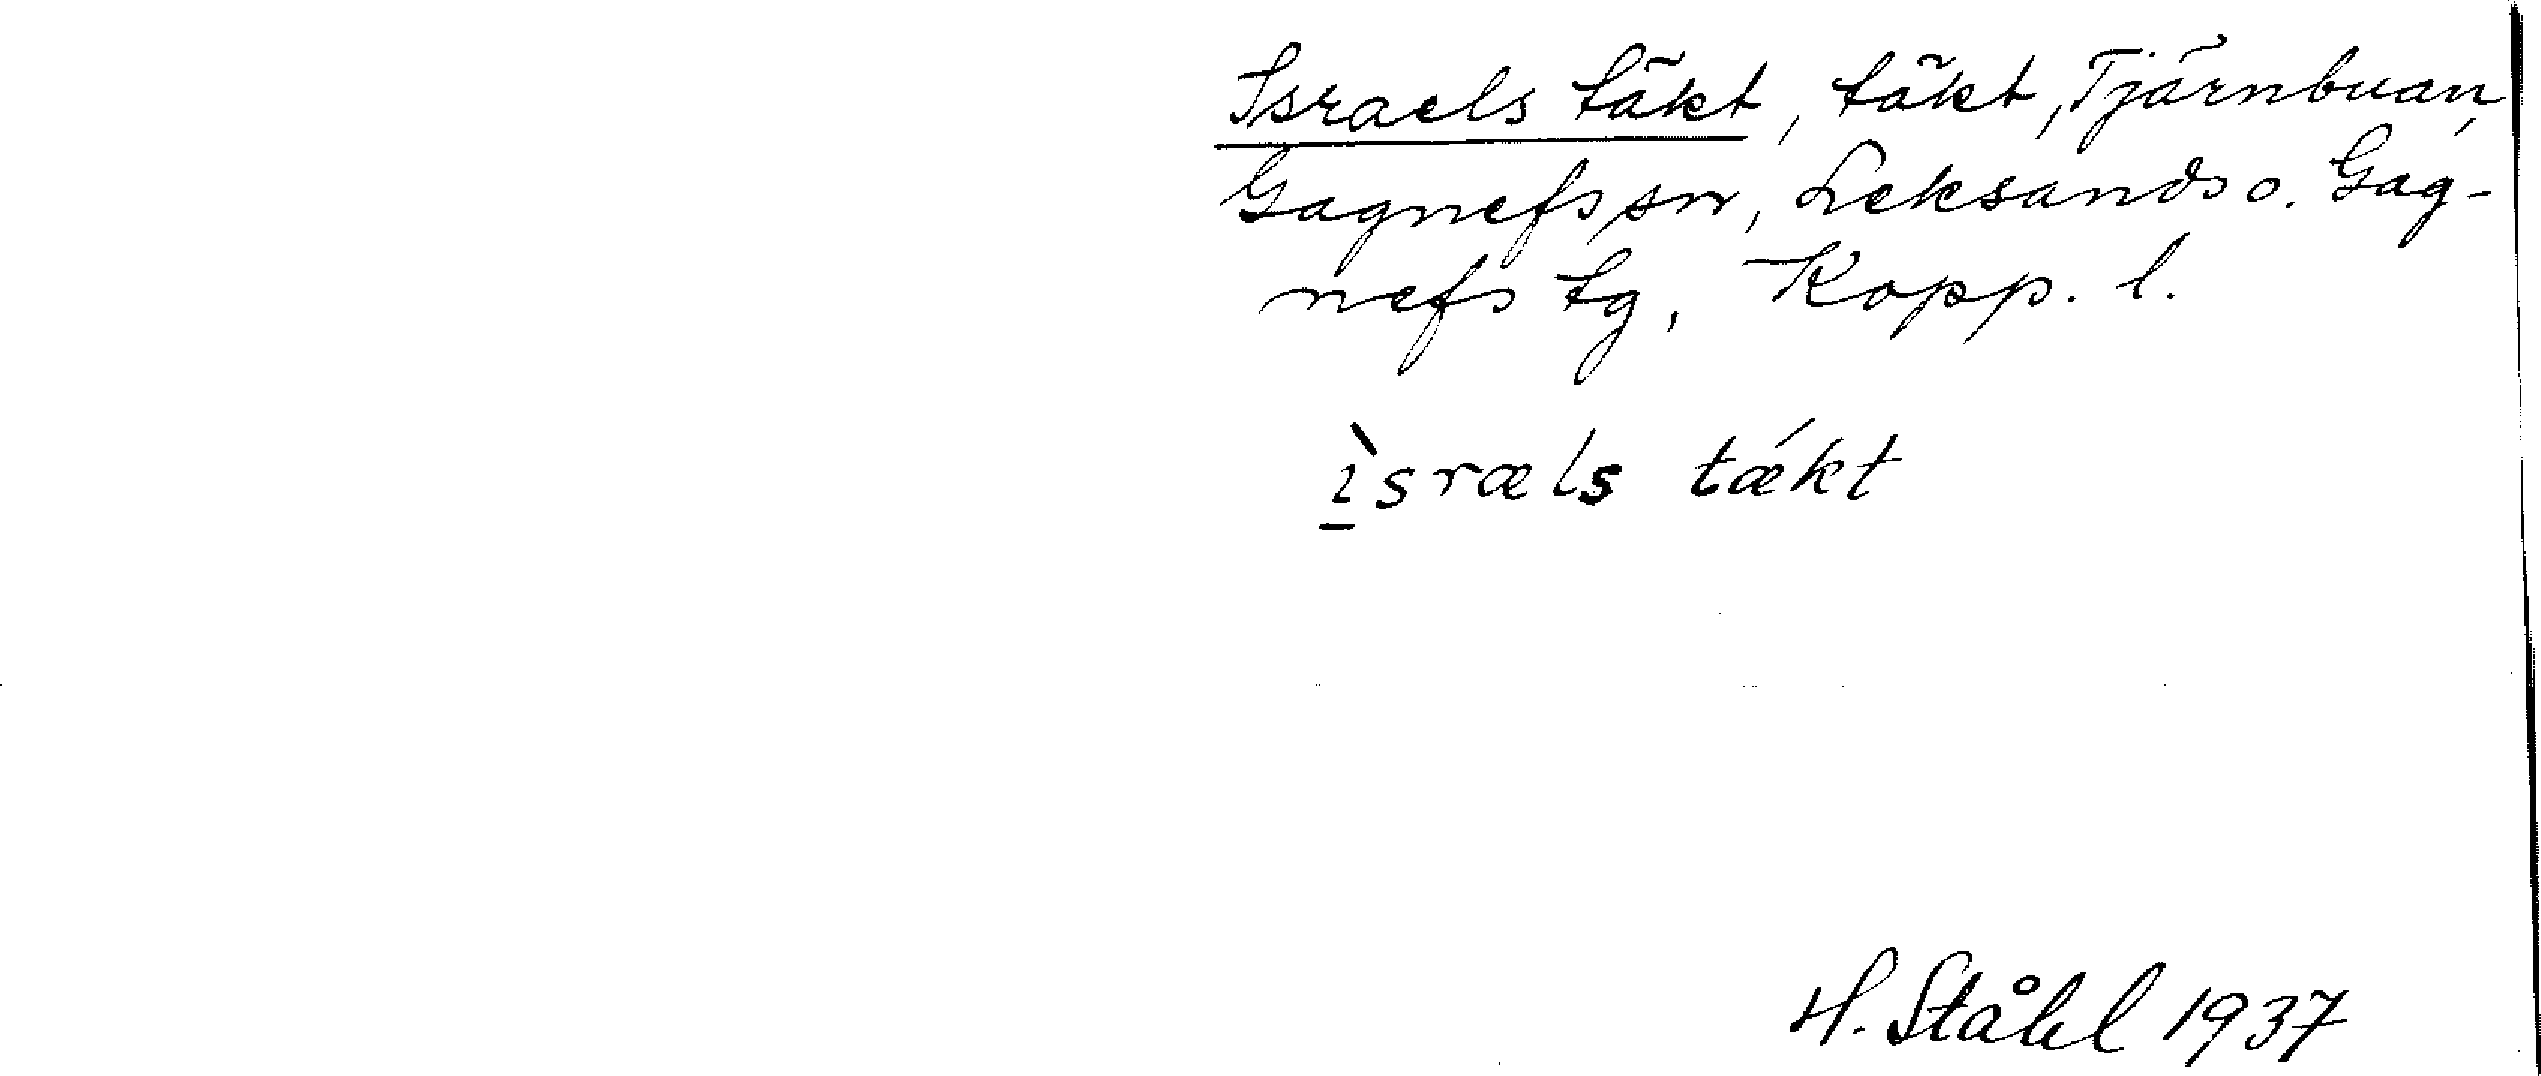 Israels täkt, täkt, Tjärnbuan,
Gagnefs sn, Leksands o. Gag-
nefs tg, Kopp. l.
ìsræls tǽkt
H. Ståhl 1937